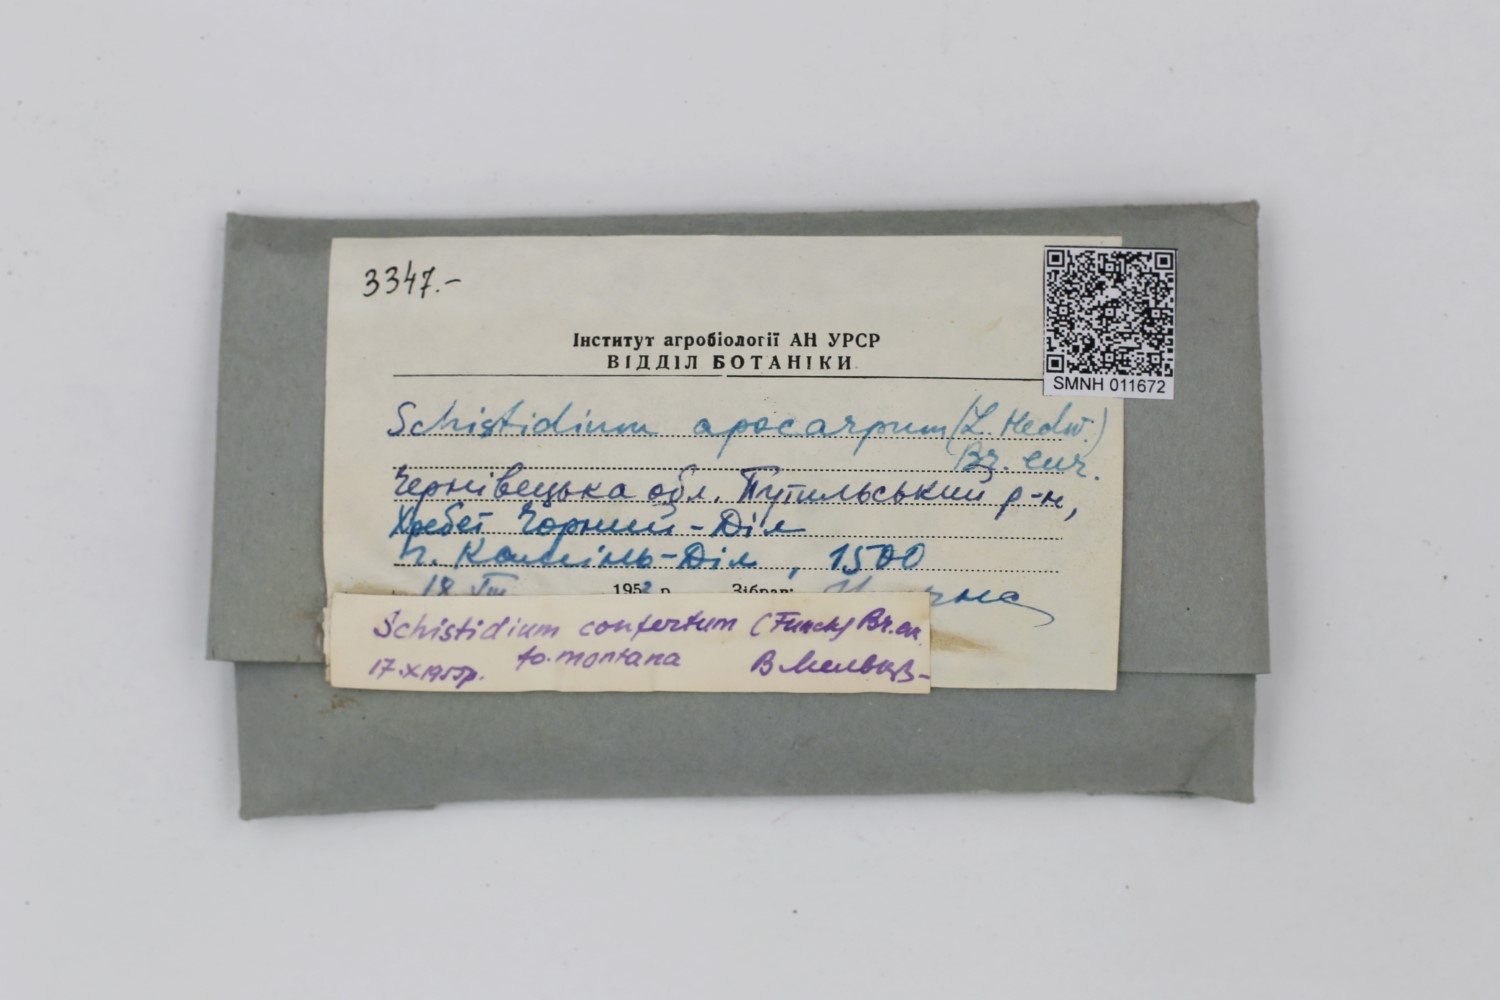 3347.-
Інститут агробіології АН УРСР
ВІДДІЛ БОТАНІКИ
SMNH 011672
Schistidium apocarpum (L. Hedw.)
Br. eur.
Чернівецька обл. Путильський р-н,
Хребет Чорний-Діл
г. Камінь-Діл, 1500
18 VIII 195 р. Зібрав:
Schistidium confertum (Funck) Br. eu.
fo. montana
17.X 1955р.